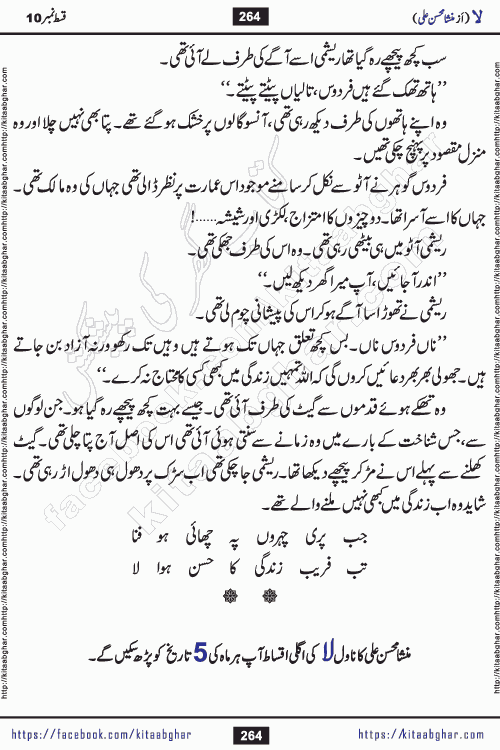 قسط نمبر 10
264
لا (از منشا محسن علی)
سب کچھ پیچھے رہ گیا تھا ریشمی اسے آگے کی طرف لے آئی تھی۔
’’ہاتھ تھک گئے ہیں فردوس، تالیاں پیٹتے پیٹتے۔‘‘
وہ اپنے ہاتھوں کی طرف دیکھ رہی تھی، آنسو گالوں پر خشک ہو گئے تھے۔ پتا بھی نہیں چلا اور وہ
منزل مقصود پر پہنچ چکی تھیں۔
فردوس گوہر نے آٹو سے نکل کر سامنے موجود اس عمارت پر نظر ڈالی تھی جہاں کی وہ مالک تھی۔
جہاں کا اسے آسرا تھا۔ دو چیزوں کا امتزاج، لکڑی اور شیشہ......!
ریشمی آٹو میں ہی بیٹھی رہی تھی۔ وہ اس کی طرف جھکی تھی۔
’’اندر آ جائیں، آپ میرا گھر دیکھ لیں۔‘‘
ریشمی نے تھوڑا سا آگے ہو کر اس کی پیشانی چوم لی تھی۔
’’ناں فردوس ناں۔ بس کچھ تعلق جہاں تک ہوتے ہیں وہیں تک رکھو ورنہ آزار بن جاتے
ہیں۔ جھولی بھر بھر دعائیں کروں گی کہ اللہ تمہیں زندگی میں کبھی کسی کا محتاج نہ کرے۔‘‘
وہ تھکے ہوئے قدموں سے گیٹ کی طرف آئی تھی۔ جیسے بہت کچھ پیچھے رہ گیا ہو۔ جن لوگوں
سے، جس شناخت کے بارے میں وہ زمانے سے سنتی ہوئی آئی تھی اس کی اصل آج پتا چلی تھی۔ گیٹ
کھلنے سے پہلے اس نے مڑ کر پیچھے دیکھا تھا۔ ریشمی جا چکی تھی اب سڑک پر دھول ہی دھول اڑ رہی تھی۔
شاید وہ اب زندگی میں کبھی نہیں ملنے والے تھے۔
جب پری چہروں پہ چھائی ہو فنا
تب فریب زندگی کا حسن ہوا لا
منشا محسن علی کا ناول لا کی اگلی اقساط آپ ہر ماہ کی 5 تاریخ کو پڑھ سکیں گے۔
https://facebook.com/kitaabghar
264
https://kitaabghar.com